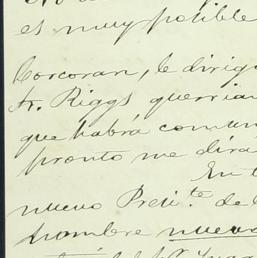 es muy posible
Corcoran, le dirig
Sr. Riggs querrian
que habrá comun
pronto me dira
En
nuevo Presi.te de
hombre nuevo